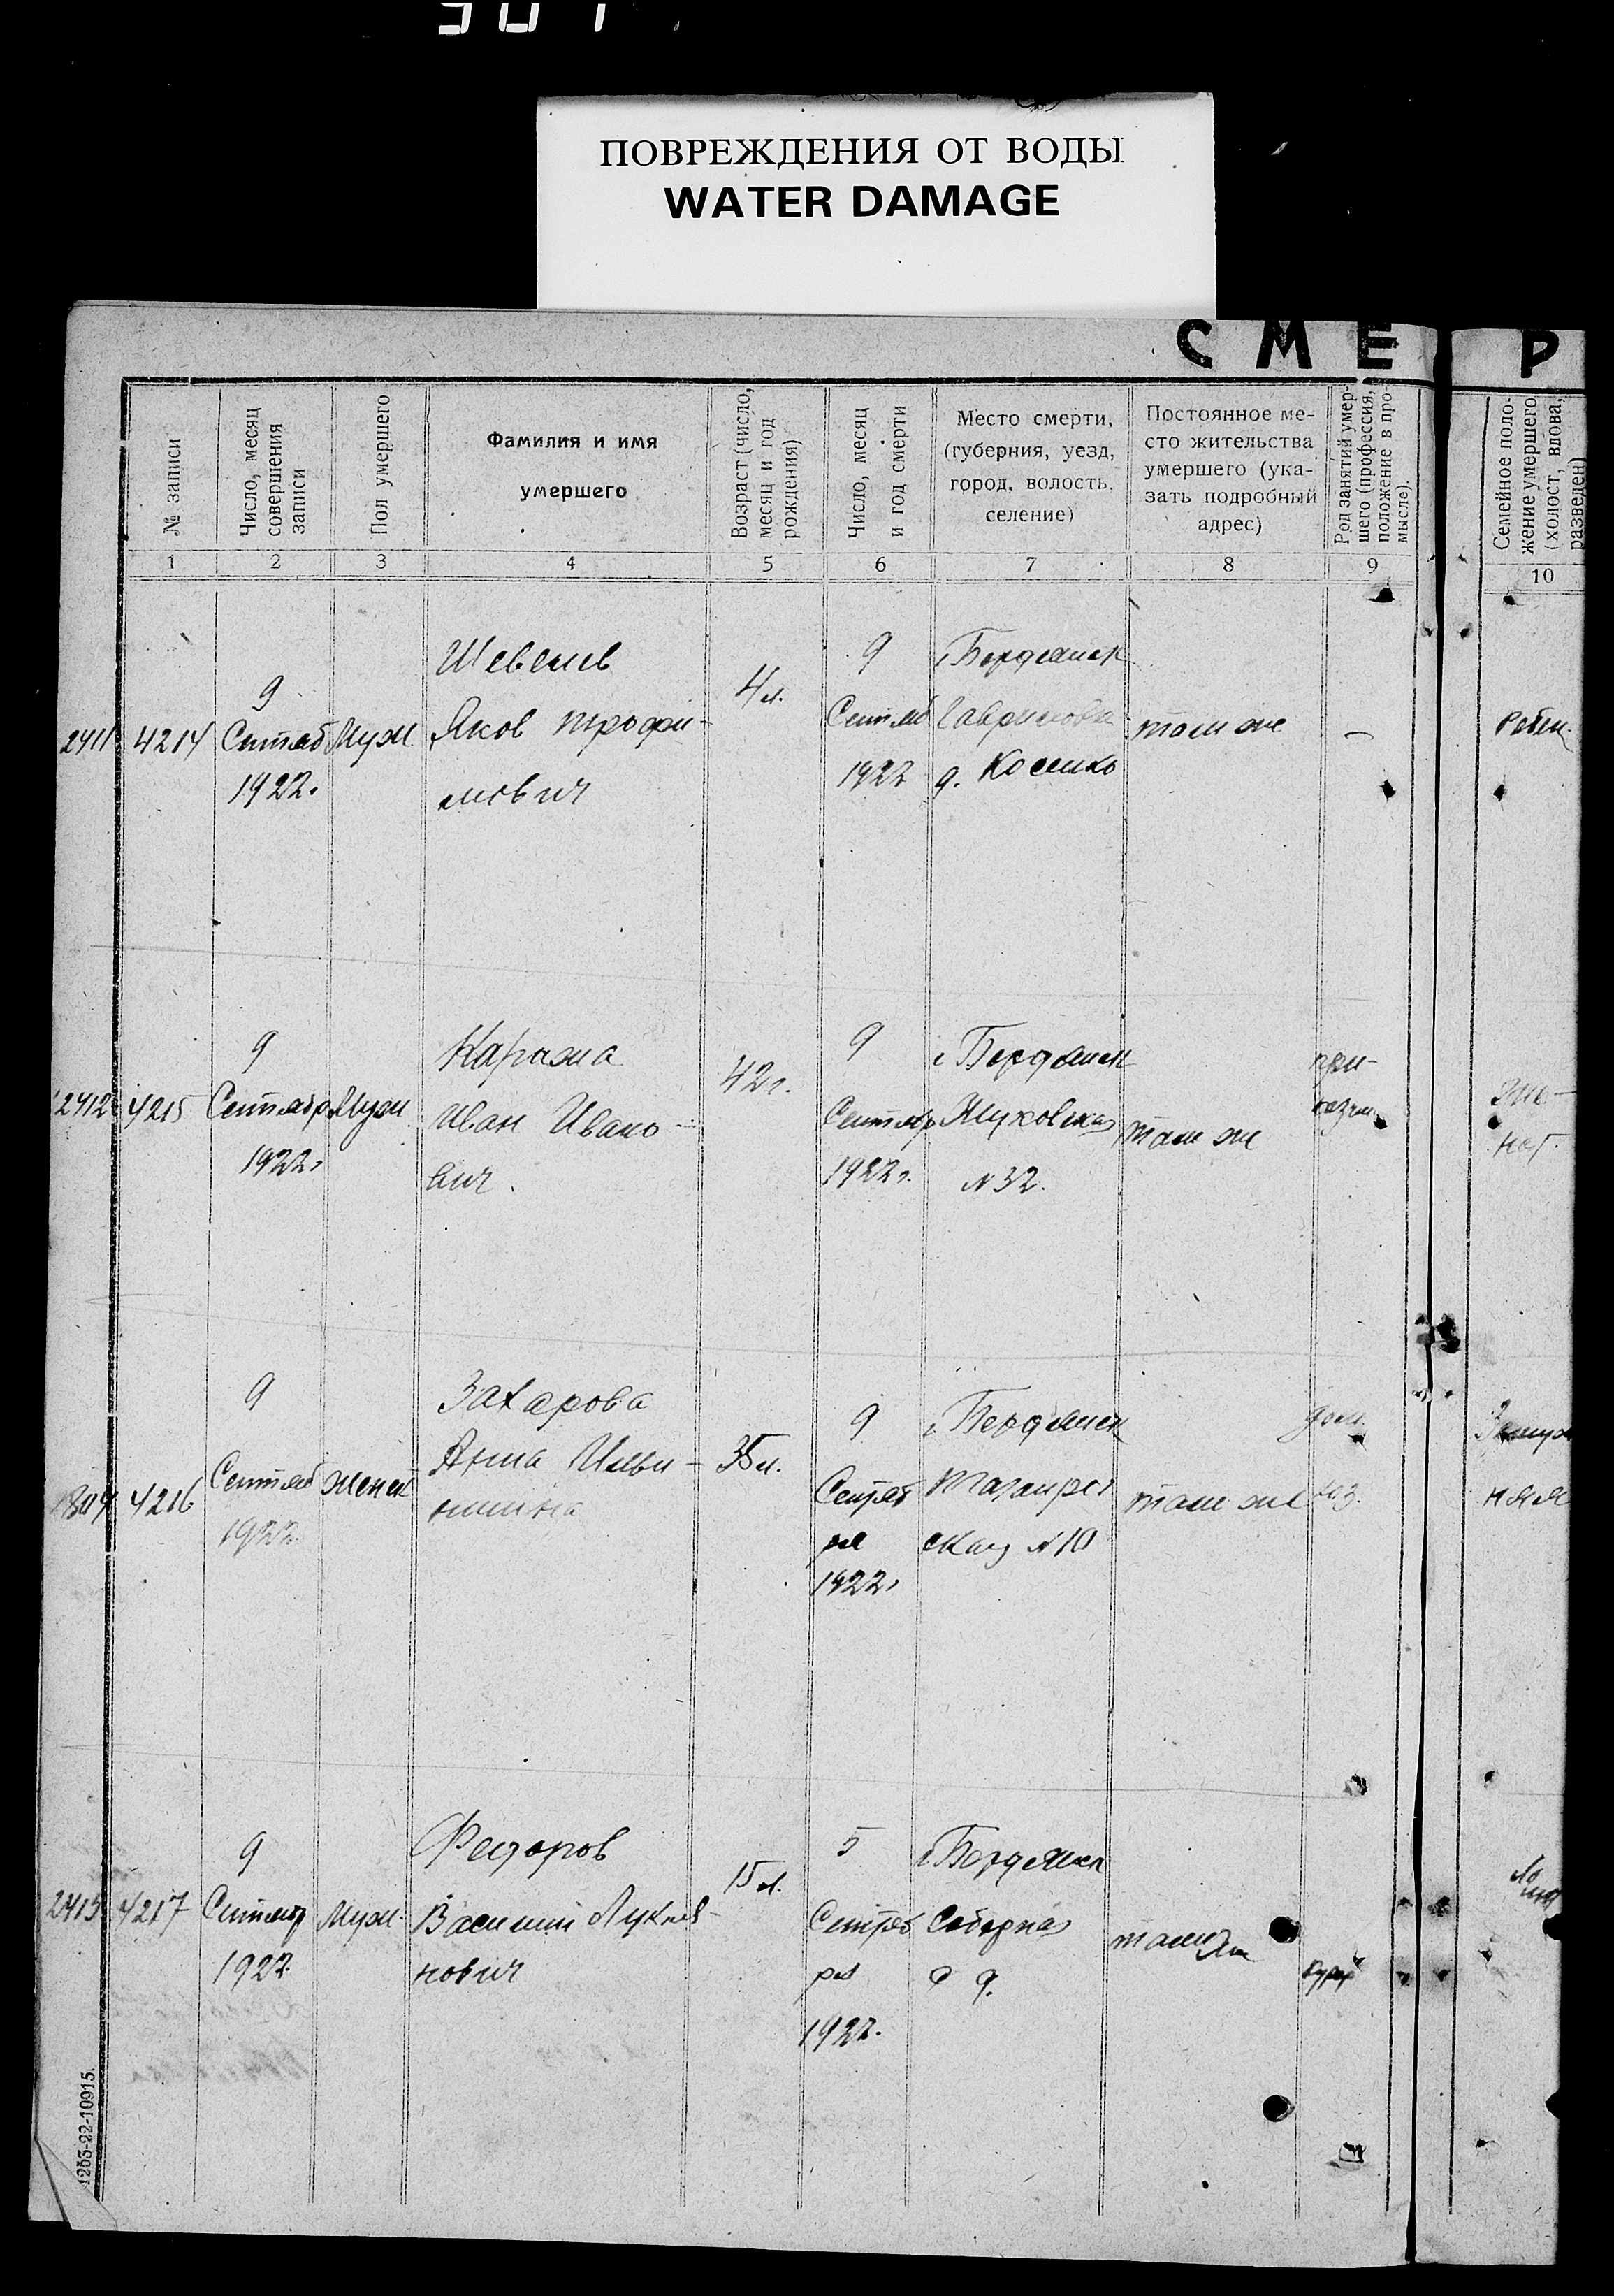 ПОВРЕЖДЕНИЯ ОТ ВОДЫ
WATER DAMAGE
С М Е Р
№ записи
Число, месяц
совершения
записи
Пол умершего
Фамилия и имя
умершего
Возраст (число,
месяц и год
рождения)
Число, месяц
и год смерти
Место смерти,
(губерния, уезд,
город, волость,
селение)
Постоянное ме-
сто жительства
умершего (ука-
зать подробный
адрес)
Род занятий умер-
шего (профессия,
положение в про-
мысле).
Семейное поло-
жение умершего
(холост, вдова,
разведен)
1 2 3 4 5 6 7 8 9 10
2411 4214
9
Сентяб
1922.
Муж
Шевелев
Яков Трофи-
мович
4 л.
9
Сентяб
1922
Бердянск
д.
там же
–
Ребен.
2412 4215
9
Сентябр
1922г
Муж
Иван Ивано-
вич.
42 г.
9
Сентябр
1922г.
г Бердянск
№ 32.
там же
же-
нат.
4216
9
Сентяб
1922
Женск
Захарова
Анна Ильи-
нишна
35 л.
9
Сентяб
ря
1922г
г Бердянск
Таганрог
ская № 10
там же
дом.
хоз.
Замуж
няя
4217
9
Сентябр
1922.
Муж.
Федоров
Василий
нович
15 л.
5
Сентяб
ря
1922.
г Бердянск
Соборная
с д.
там же
1253-22-10915.